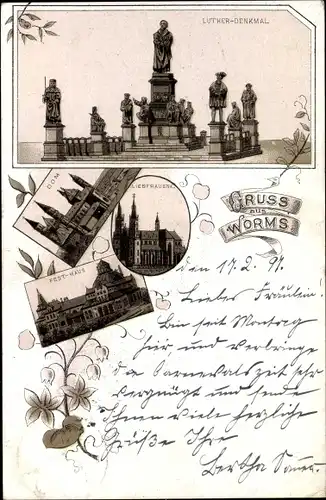 LUTHER-DENKMAL
DOM
LIEBFRAUENK.
GRUSS
aus
WORMS
FEST-HAUS
den 17.2.91.
Liebes Fräulein!
Bin seit Montag
hier, und verbringe
die Carnevalszeit sehr
vergnügt und sende
Ihnen viele herzliche
Grüße Ihre
Bertha